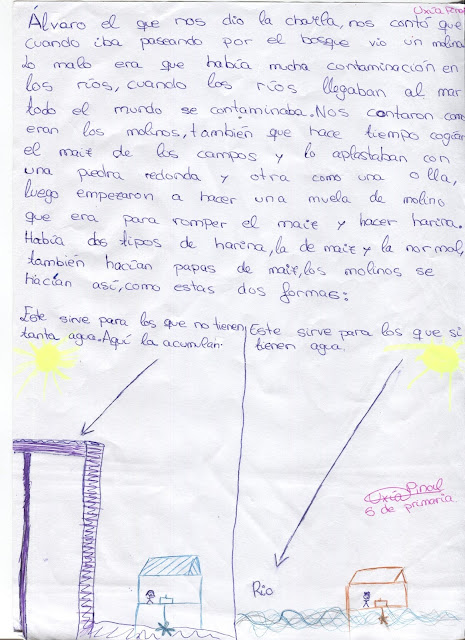 Uxía Pinal
Álvaro el que nos dio la charla, nos contó que
cuando iba paseando por el bosque vio un molino
Lo malo era que había mucha contaminación en
los ríos, cuando los ríos llegaban al mar
todo el mundo se contaminaba. Nos contaron como
eran los molinos, también que hace tiempo cogían
el maiz de los campos y lo aplastaban con
una piedra redonda y otra como una olla,
luego empezaron a hacer una muela de molino
que era para romper el maiz y hacer harina.
Había dos tipos de harina, la de maiz y la normal,
también hacían papas de maiz, los molinos se
hacían así, como estas dos formas:
Este sirve para los que no tienen
tanta agua. Aquí la acumulan:
Este sirve para los que si
tienen agua.
Uxía Pinal
5 de primaria
Río